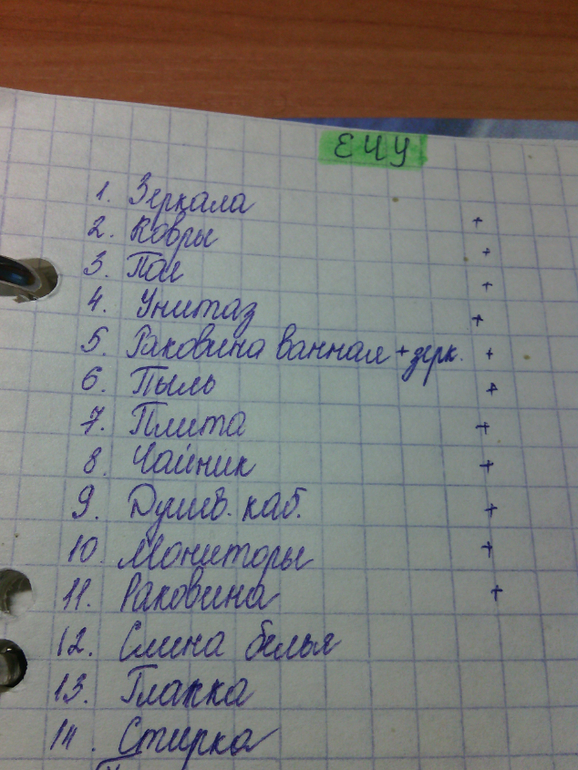 ЕЧУ
1. Зеркала +
2. Ковры +
3. Пол +
4. Унитаз +
5. Раковина ванная + зерк. +
6. Пыль +
7. Плита +
8. Чайник +
9. Душев. каб. +
10. Мониторы +
11. Раковина +
12. Смена белья
13. Глажка
14. Стирка